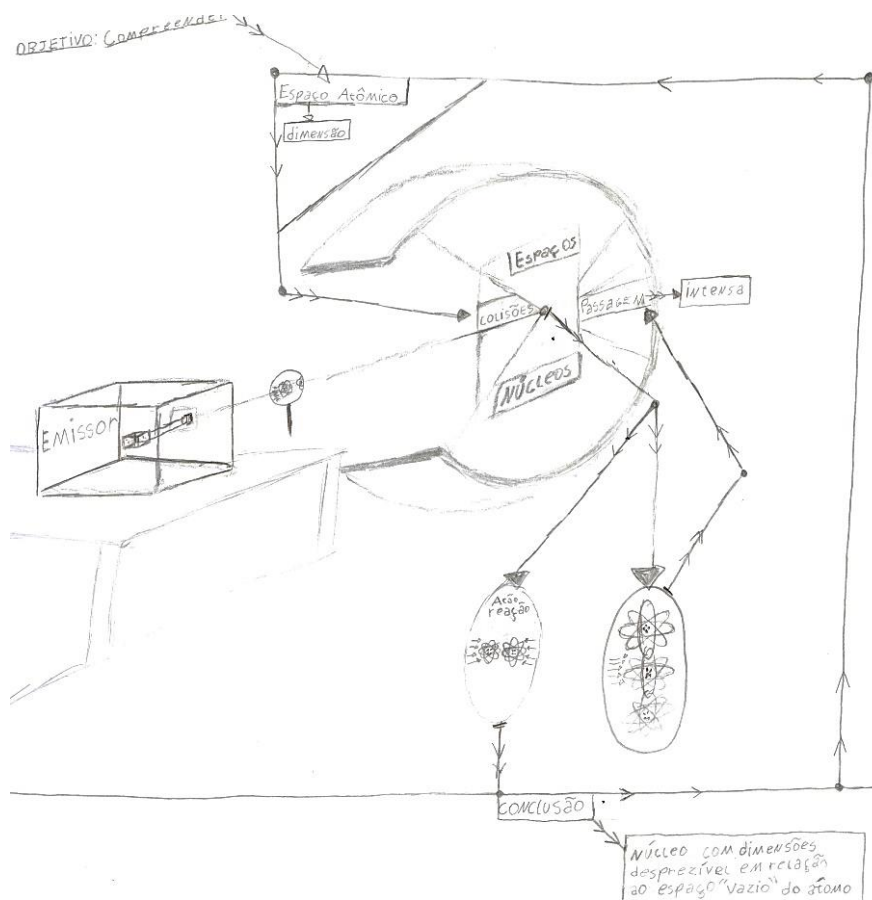 OBJETIVO: Compreender
Espaço Atômico
dimensão
Espaços
COLISÕES
PASSAGEM
intensa
NÚCLEOS
EMISSOR
Ação
reação
CONCLUSÃO
NÚCLEO COM dimensões
desprezível em relação
ao espaço "vazio" do átomo